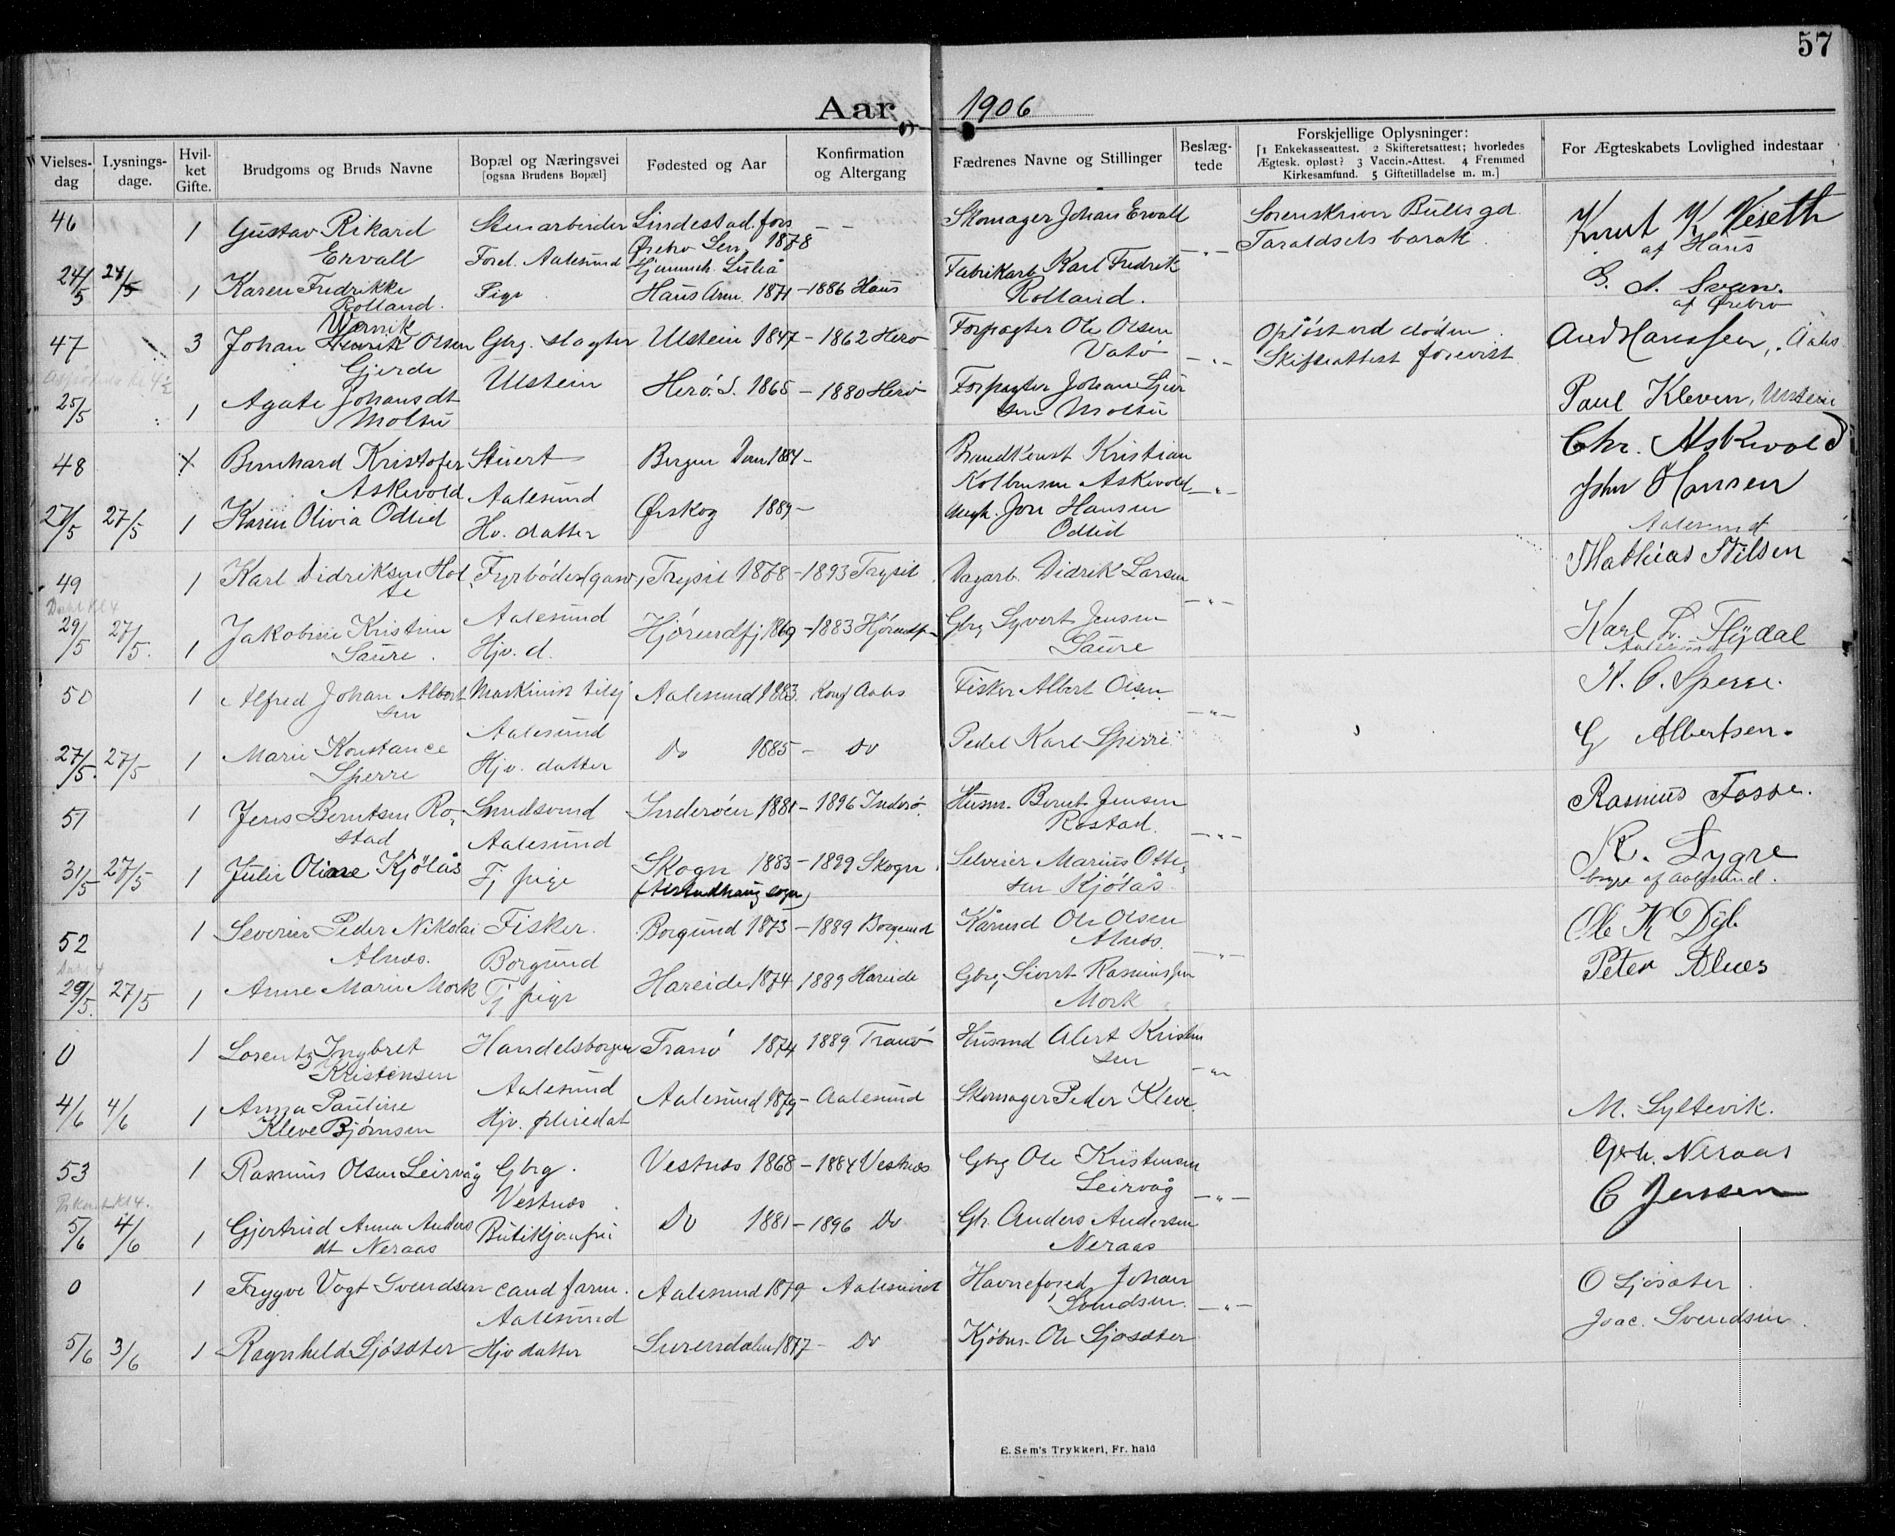 57
Aar 1906
Vielses-dag
Lysnings-dage.
Hvil-ket Gifte.
Brudgoms og Bruds Navne
Bopæl og Næringsvei
[ogsaa Brudens Bopæl]
Fødested og Aar
Konfirmation og Altergang
Fædrenes Navne og Stillinger
Beslæg-tede
Forskjellige Oplysninger:
[1 Enkekasseattest. 2 Skifteretsattest; hvorledes
Ægtesk. opløst? 3 Vaccin.-Attest. 4 Fremmed
Kirkesamfund. 5 Giftetilladelse m. m.]
For Ægteskabets Lovlighed indestaar
46 1 Gustav Rikard Ervall Stenarbeider Aalesund 1878 Skomager Johan Ervall Sorenskriver Bulls gd Taraldsets barak Knut K. af Haus
24/5 24/5 1 Karen Fredrikke Rolland Pige Haus 1871 - 1886 Haus Fabrikarb Karl Fredrik Rolland. G. A. Svan. af Ørebro
47 3 Johan Olsen Gjerde Gbrg. slagter Ulstein Ulstein 1847 - 1862 Herø Forpagter Ole Olsen Vatø Opløst ved døden. Skifteattest forevist And Hanssen, Aals
25/5 1 Agate Johansdt Moltu Herø. S. 1865 - 1880 Herø Forpagter Johan Moltu Paul Kleven, Ulstein
48 1 Bernhard Kristofer Askevold Stuert Aalesund Bergen Dom 1884 - Kristian Askevold Chr. Askevold
27/5 27/5 1 Karen Olivia Ødlid Hv. datter Ørskog 1889 - Jon Hansen Ødlid John Hansen Aalesund
49 1 Karl Didriksen Holte Fyrbøder (gasv. Aalesund Trysil 1878 - 1893 Trysil Dagarb. Didrik Larsen Mathias Nilsen
Dahl Kl 4
29/5 27/5. 1 Jakobine Kristine Saure. Hjv. d. Hjørendfj 1869 - 1883 Hjørendfj Gbrg Syvert Jensen Saure Karl L. Flydal Aalesund
50 1 Alfred Johan Albertsen Maskinist Aalesund Aalesund 1883. Konf Aals Fisker Albert Olsen K. O. Sperre.
27/5. 27/5 1 Marie Konstance Sperre Hjv. datter Do 1885 - Do Pedel Karl Sperre G Albertsen.
51 1 Jens Berntsen Rostad Smedsvend Aalesund Inderøen 1881 - 1896 Inderø. Husm. Bernt Jensen Rostad. Rasmus Fosse.
31/5 27/5 1 Julie Oline Kjølås Tj pige Skogn 1883 - 1899 Skogn. Marius Ottesen Kjølås R. Lygre af Aalesund.
52 1 Severin Peder Nikolai Alnæs. Fisker. Borgund Borgund 1873 - 1889 Borgund Kårmd Ole Olsen Alnæs. Ole K Dyb
Dahl 4
29/5. 27/5 1 Anne Marie Mork Tj pige Hareide 1874 1889 Hareide Gbrg Sivert Rasmussen Mork Peter Alnes
0 1 Lorentz Ingbret Kristensen Handelsborger Aalesund Tranø 1874 1889 Tranø Husmd Alert Kristensen
4/6 4/6 1 Anna Pauline Kleve Bjørnsen Hjv. pleiedat Aalesund 1879 - Aalesund Skomager Peder Kleve. M. Syltevik.
53 1 Rasmus Olsen Leirvåg Gbrg. Vestnæs Vestnæs 1868 - 1884 Vestnæs Gbrg Ole Kristensen Leirvåg Neraas
5/6 4/6 1 Gjertrud Anna Andersdt Neraas Do 1881 - 1896 Do Gbr. Anders Andersen Neraas C Jensen
0 1 Trygve Vogt Svendsen cand farm. Aalesund Aalesund 1879 Aalesund Havnefoged Johan Svendsen. O Sjøsæter.
5/6 3/6 1 Ragnhild Sjøsæter Hjv datter Surendalen 1877 - Do Kjøbm. Ole Sjøsæter Svendsen.
E. Sem's Trykkeri, Fr. hald